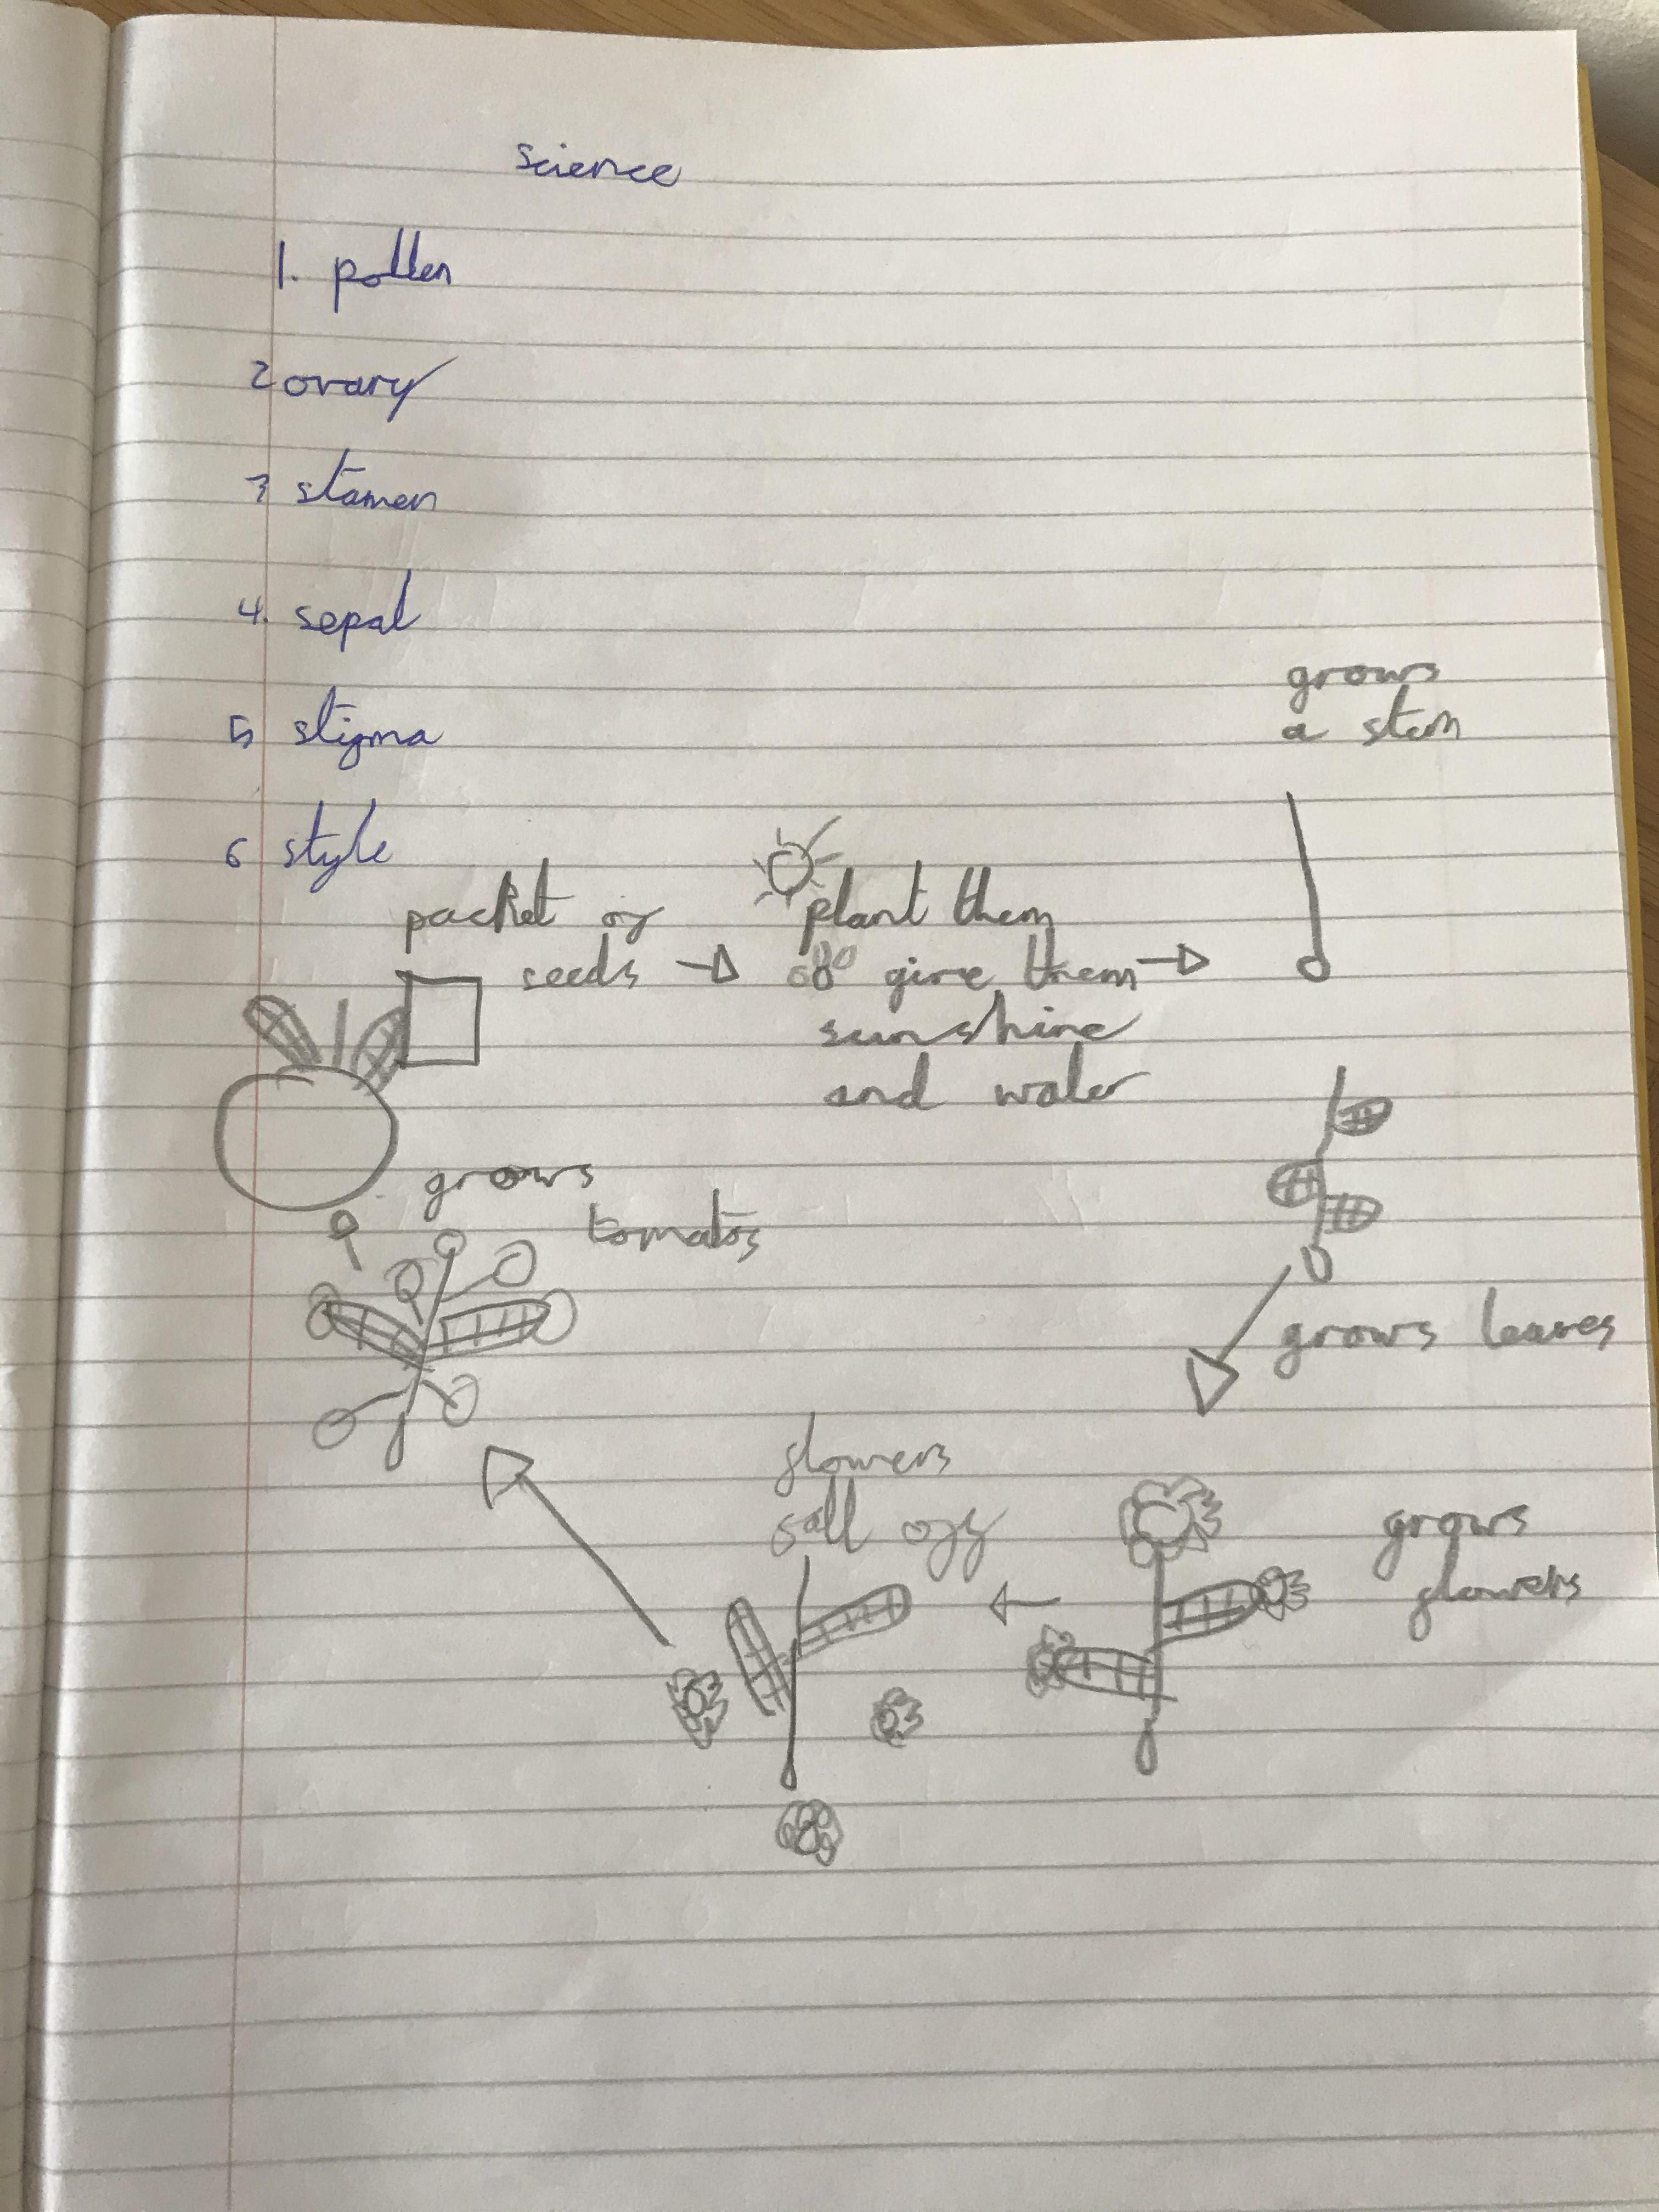 science
1. pollen
2 ovary
3 stamen
4. sepal
5 stigma
6 style
packet of
seeds
plant them
give them
sunshine
and water
grows
a stem
grows leaves
grows
flowers
flowers
fall off
grows
tomatos